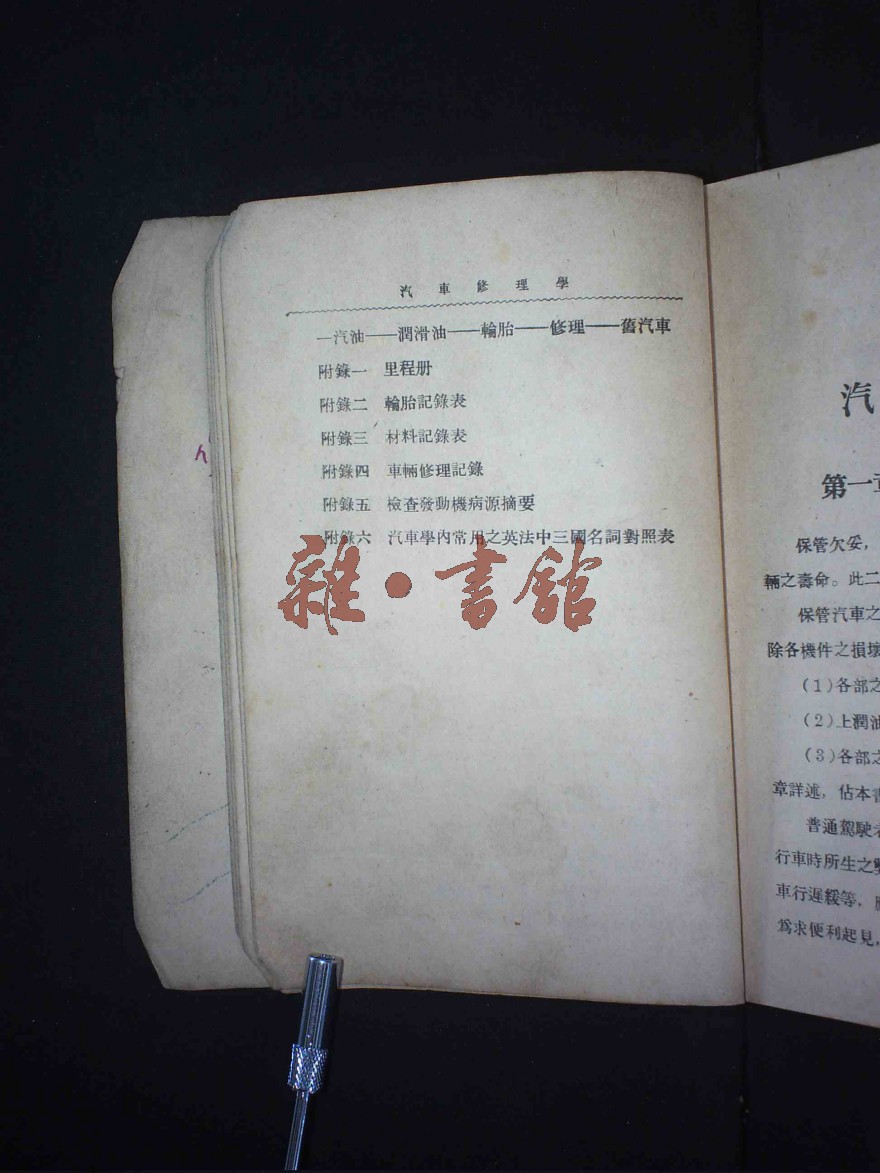 汽車修理學
一汽油——潤滑油——輪胎——修理——舊汽車
附錄一 里程册
附錄二 輪胎記錄表
附錄三 材料記錄表
附錄四 車輛修理記錄
附錄五 檢查發動機病源摘要
附錄六 汽車學內常用之英法中三國名詞對照表
雜·書館
汽
第一章
保管欠妥，
輛之壽命。此二
保管汽車之
除各機件之損壞
(1)各部之
(2)上潤油
(3)各部之
章詳述，佔本書
普通駕駛者
行車時所生之
車行遲緩等，
爲求便利起見，